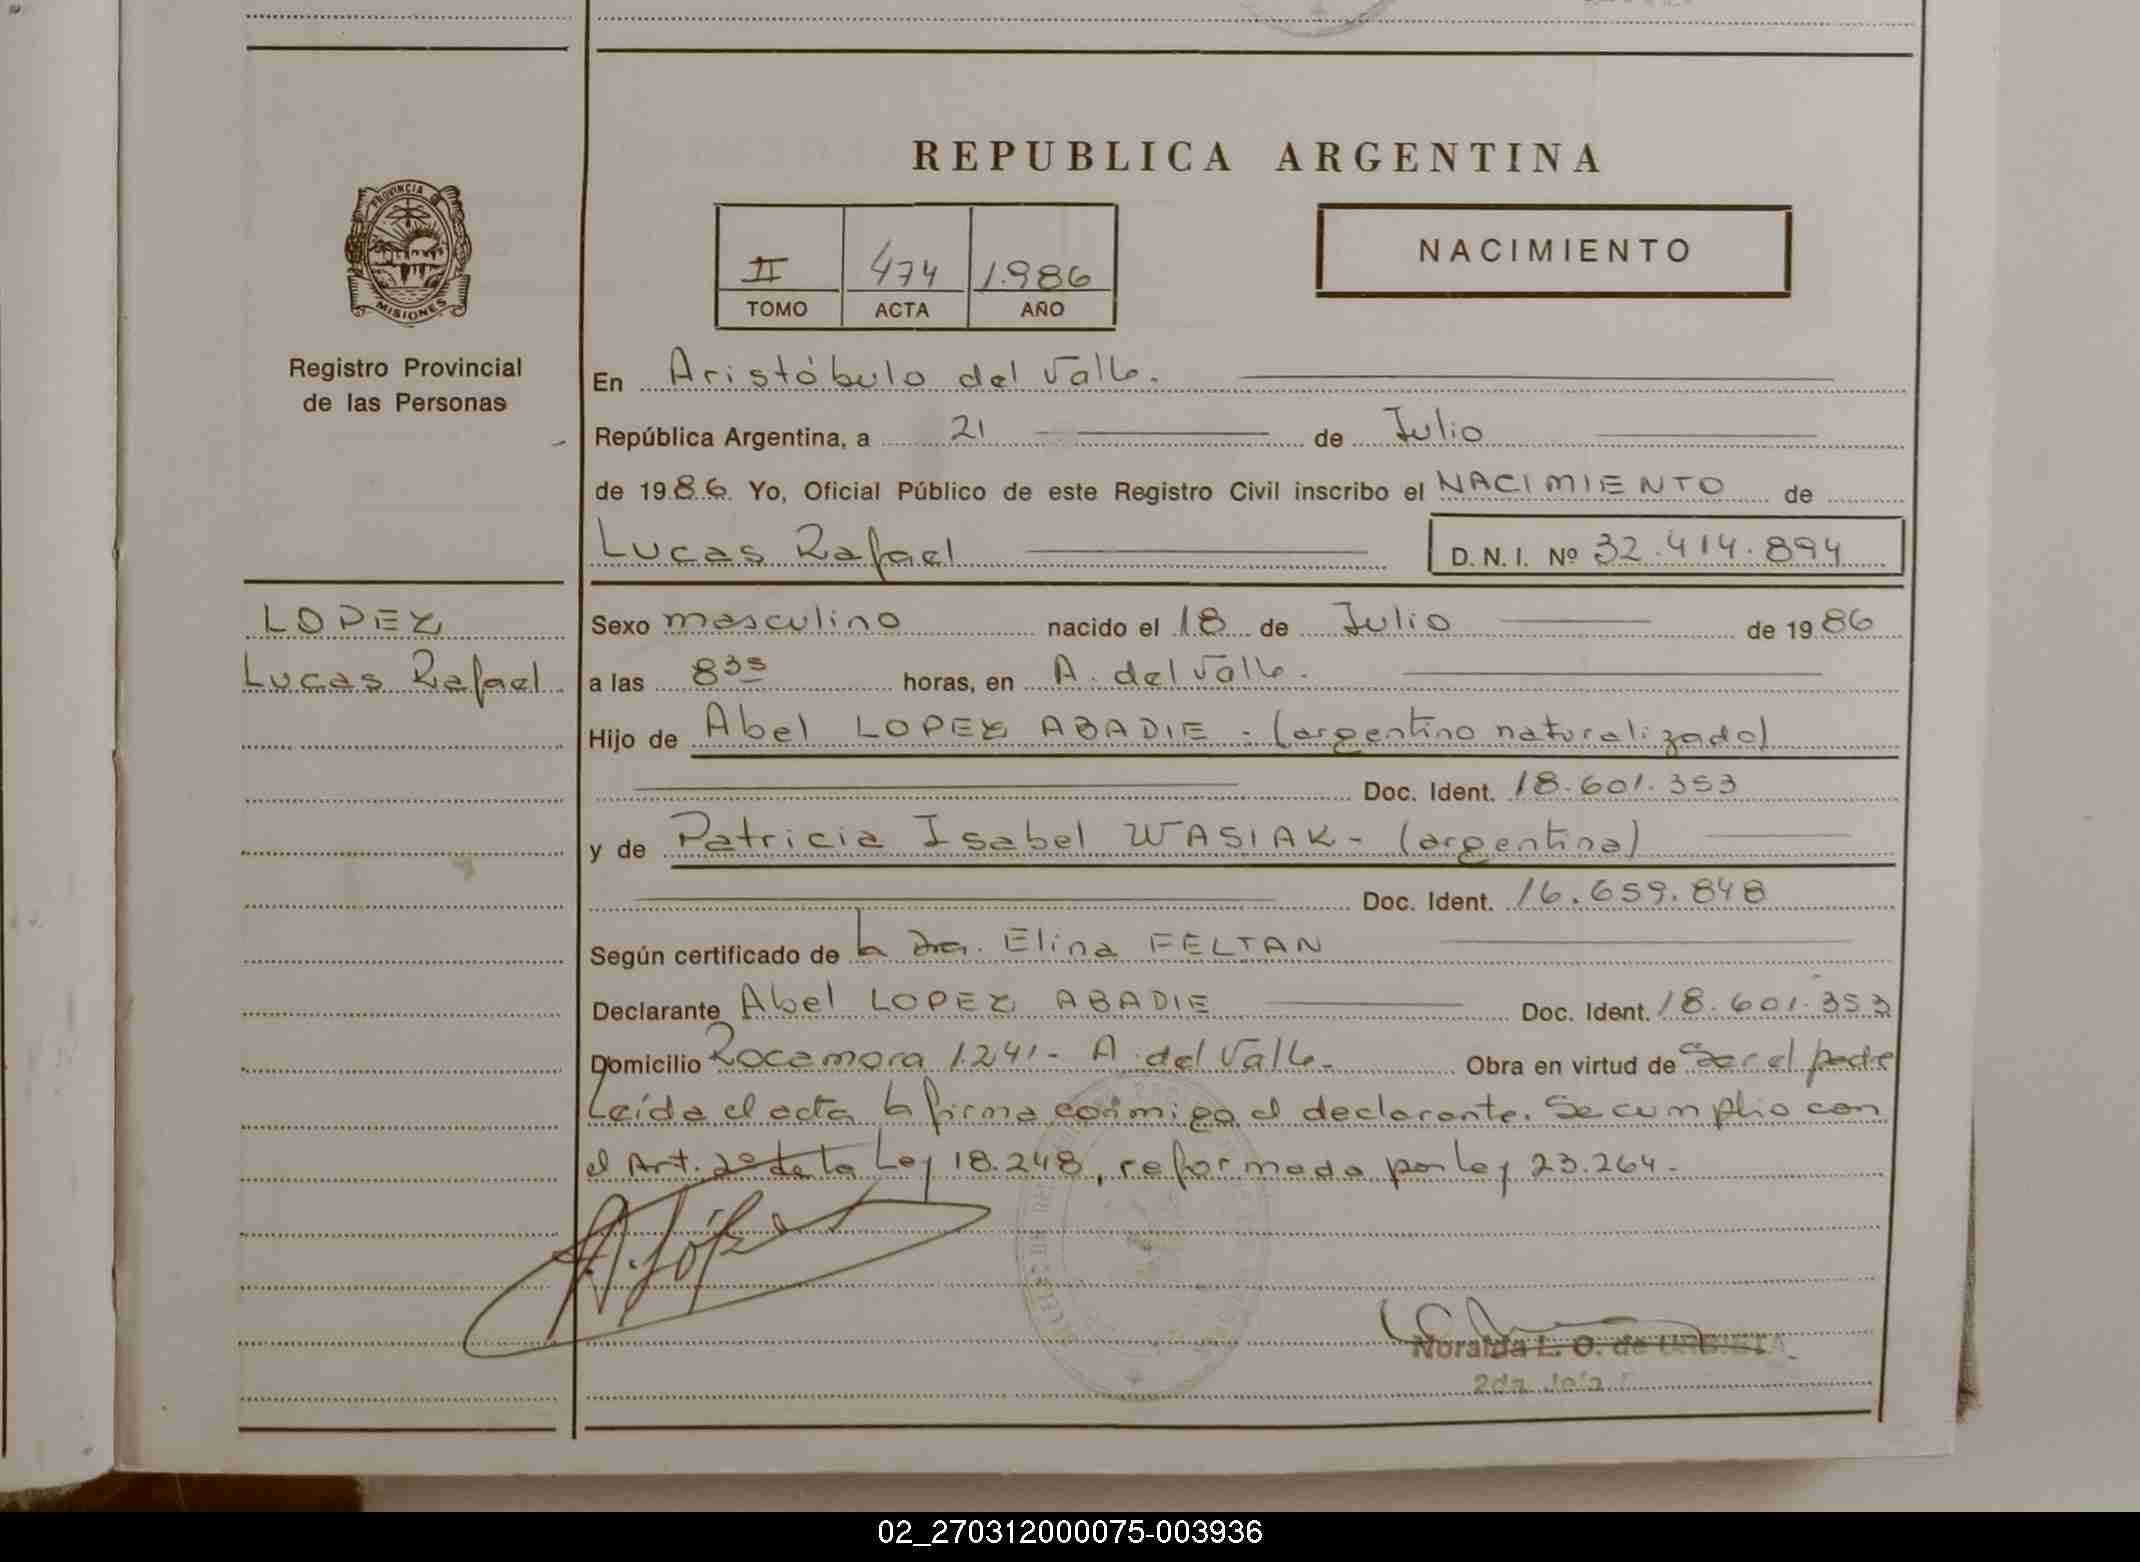 REPUBLICA ARGENTINA
PROVINCIA
MISIONES
II 474 1.986
TOMO ACTA AÑO
NACIMIENTO
Registro Provincial
de las Personas
En Aristóbulo del Valle.
República Argentina, a 21 de Julio
de 1986. Yo, Oficial Público de este Registro Civil inscribo el NACIMIENTO de
Lucas Rafael D. N. I. Nº 32.414.894
LOPEZ
Lucas Rafael
Sexo masculino nacido el 18 de Julio de 1986
a las 8 35 horas, en A. del Valle.
Hijo de Abel LOPEZ ABADIE - (argentino naturalizado)
Doc. Ident. 18.601.353
y de Patricia Isabel WASIAK - (argentina)
Doc. Ident. 16.659.848
Según certificado de la Dra. Elina FELTAN
Declarante Abel LOPEZ ABADIE Doc. Ident. 18.601.353
Domicilio Rocamora 1.241 - A. del Valle - Obra en virtud de Ser el padre
Leída el acta la firma conmigo el declarante. Se cumplio con
el Art. 2º de la Ley 18.248, reformada por Ley 23.264 -
A. López
Noralda L. O. de
2da. Jefa
02_270312000075-003936